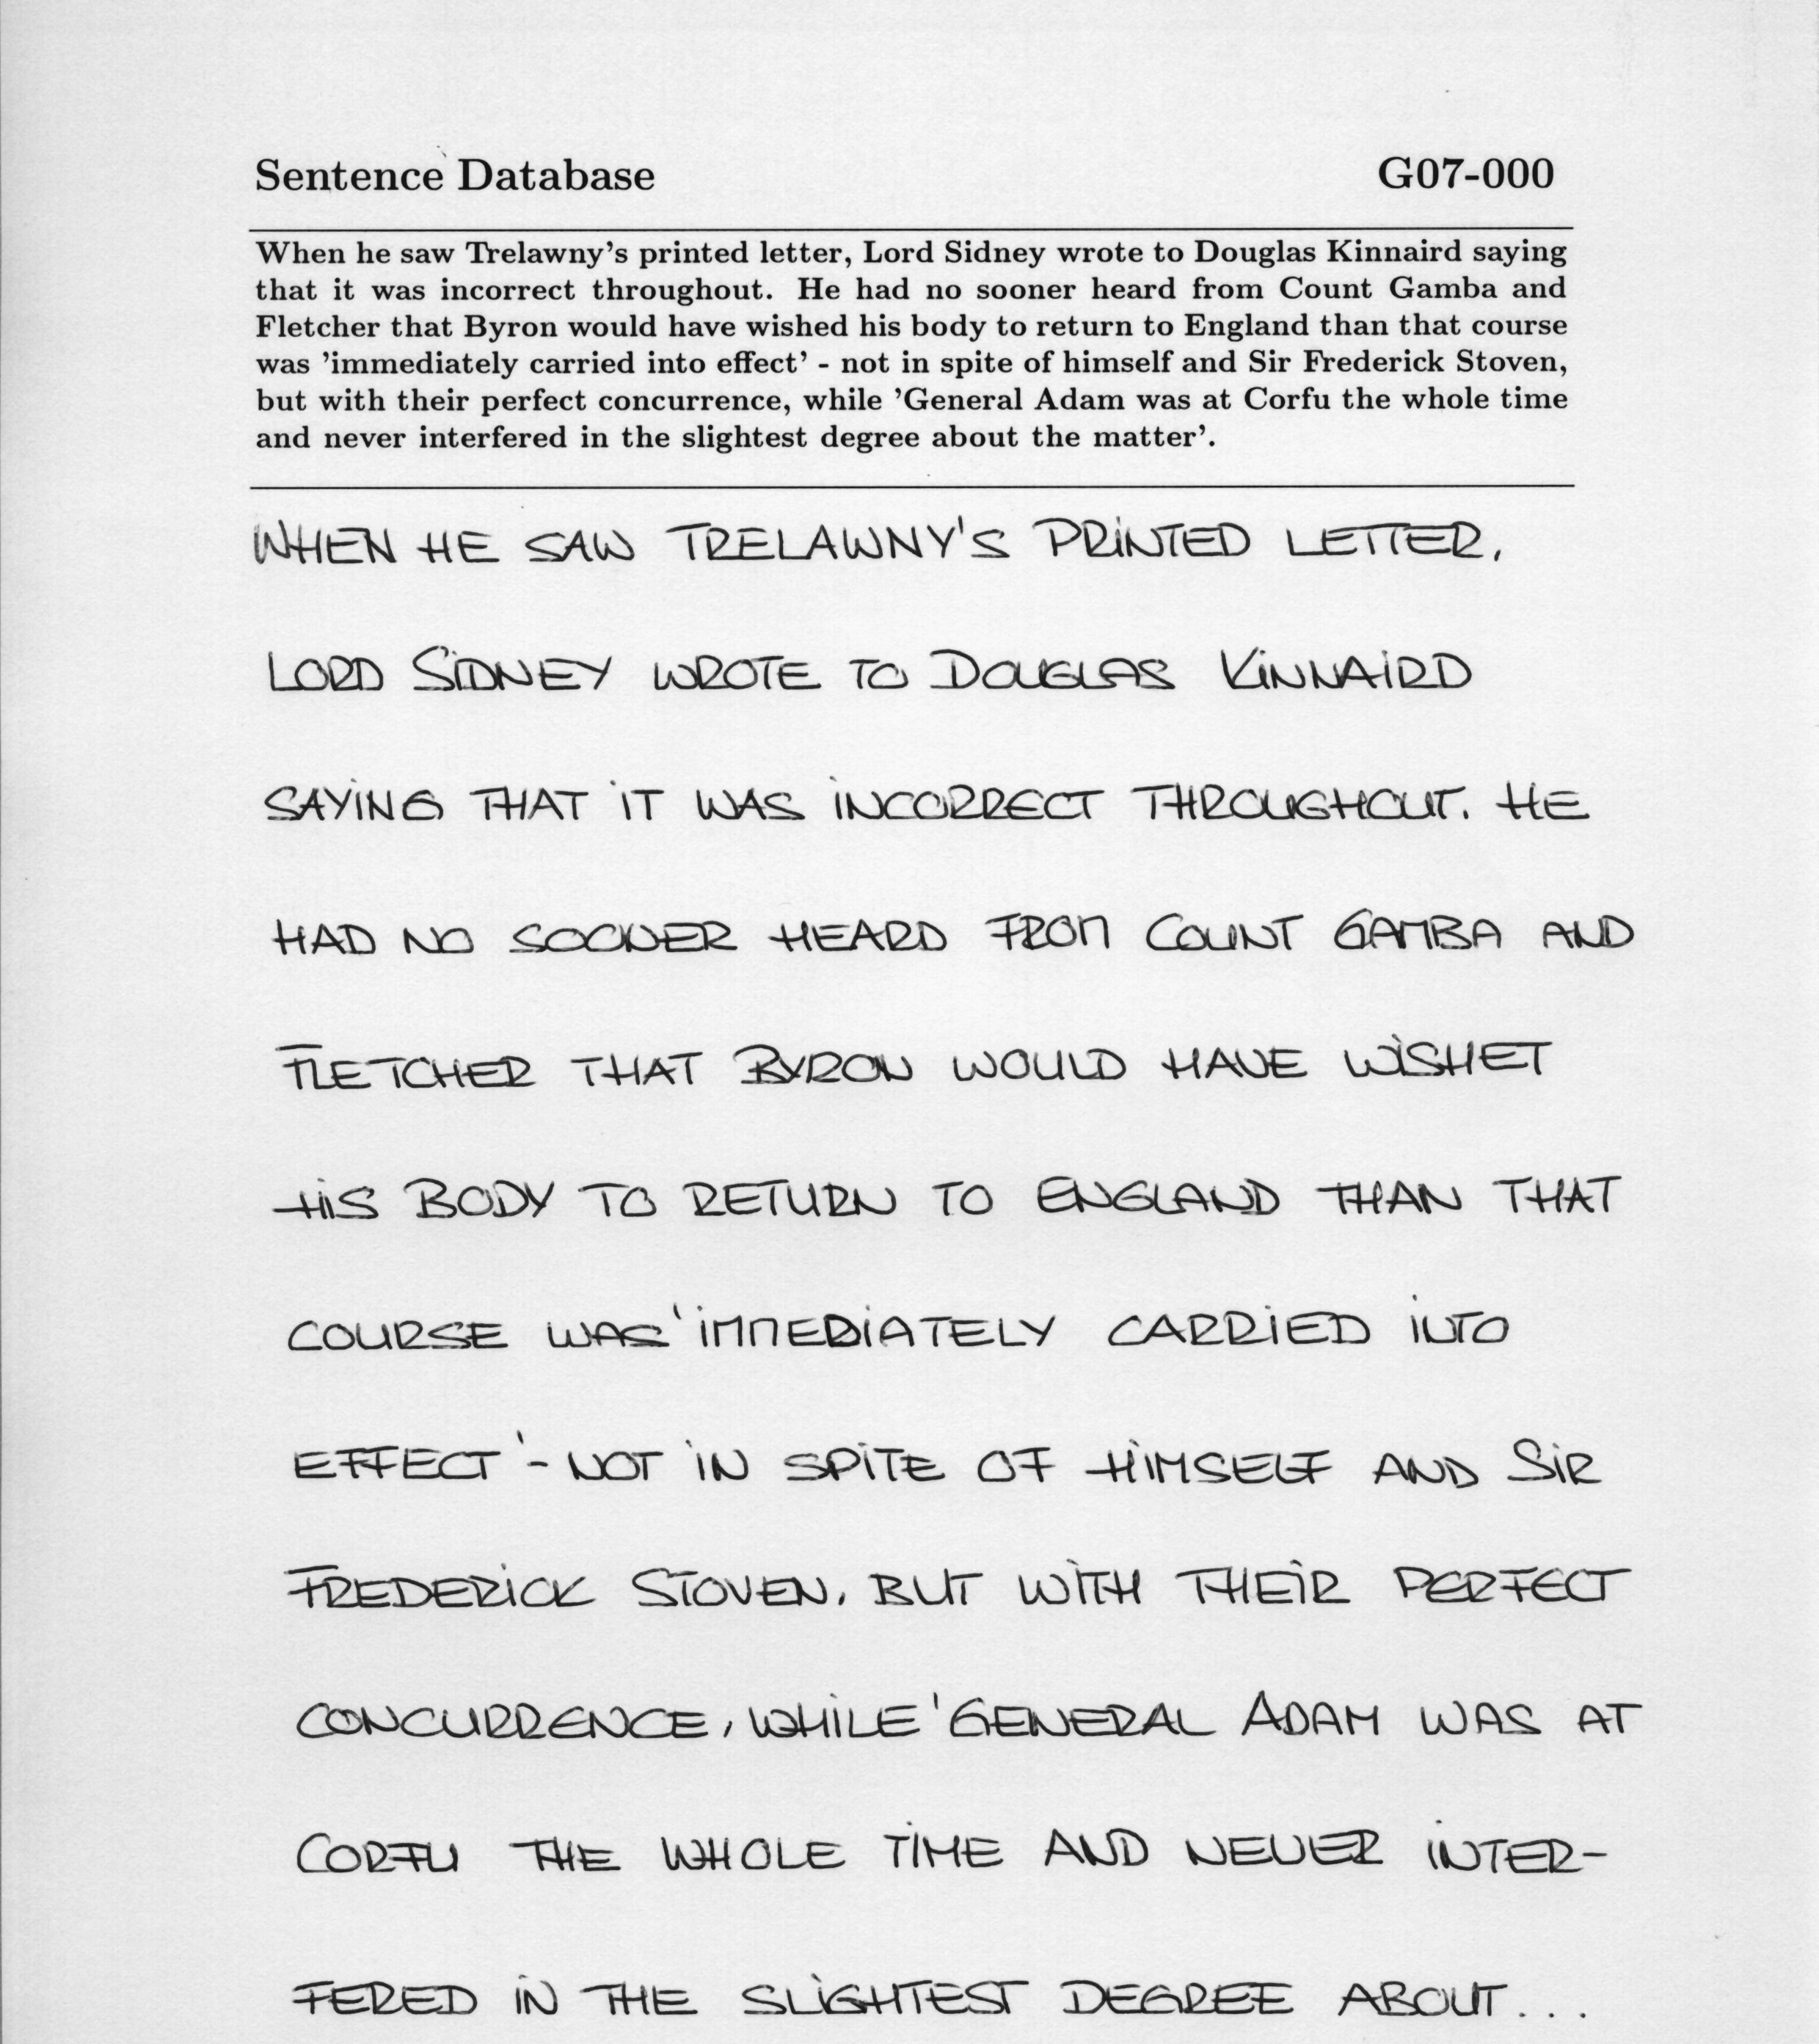 Sentence Database G07-000
When he saw Trelawny's printed letter, Lord Sidney wrote to Douglas Kinnaird saying
that it was incorrect throughout. He had no sooner heard from Count Gamba and
Fletcher that Byron would have wished his body to return to England than that course
was 'immediately carried into effect' - not in spite of himself and Sir Frederick Stoven,
but with their perfect concurrence, while 'General Adam was at Corfu the whole time
and never interfered in the slightest degree about the matter'.
WHEN HE SAW TRELAWNY'S PRiNTED LETTER,
LORD SiDNEY WROTE TO DOUGLAS KiNNAiRD
SAYiNG THAT iT WAS iNCORRECT THROUGHOUT. HE
HAD NO SOONER HEARD FROM COUNT GAMBA AND
FLETCHER THAT BYRON WOULD HAVE WiSHET
HiS BODY TO RETURN TO ENGLAND THAN THAT
COURSE WAS 'iMMEDiATELY CARRiED iNTO
EFFECT' - NOT iN SPiTE OF HiMSELF AND SiR
FREDERiCK STOVEN, BUT WiTH THEiR PERFECT
CONCURRENCE, WHiLE 'GENERAL ADAM WAS AT
CORFU THE WHOLE TiME AND NEVER iNTER-
FERED iN THE SLiGHTEST DEGREE ABOUT...